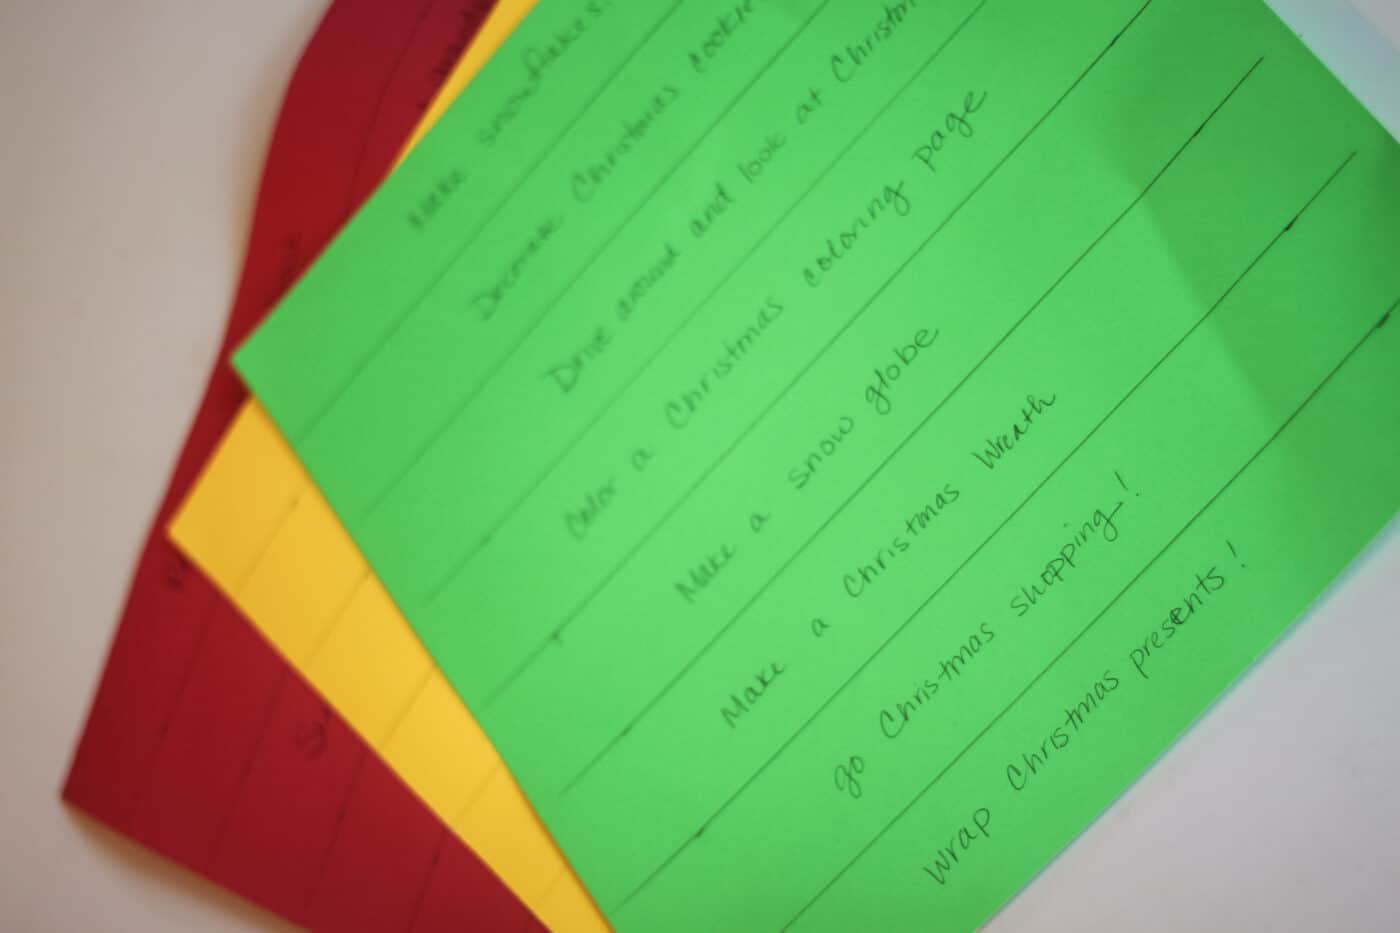 Make snowflakes
Decorate Christmas cookie
Drive around and look at Christm
Color a Christmas coloring page
Make a snow globe
Make a Christmas Wreath
go Christmas shopping!
Wrap Christmas presents!